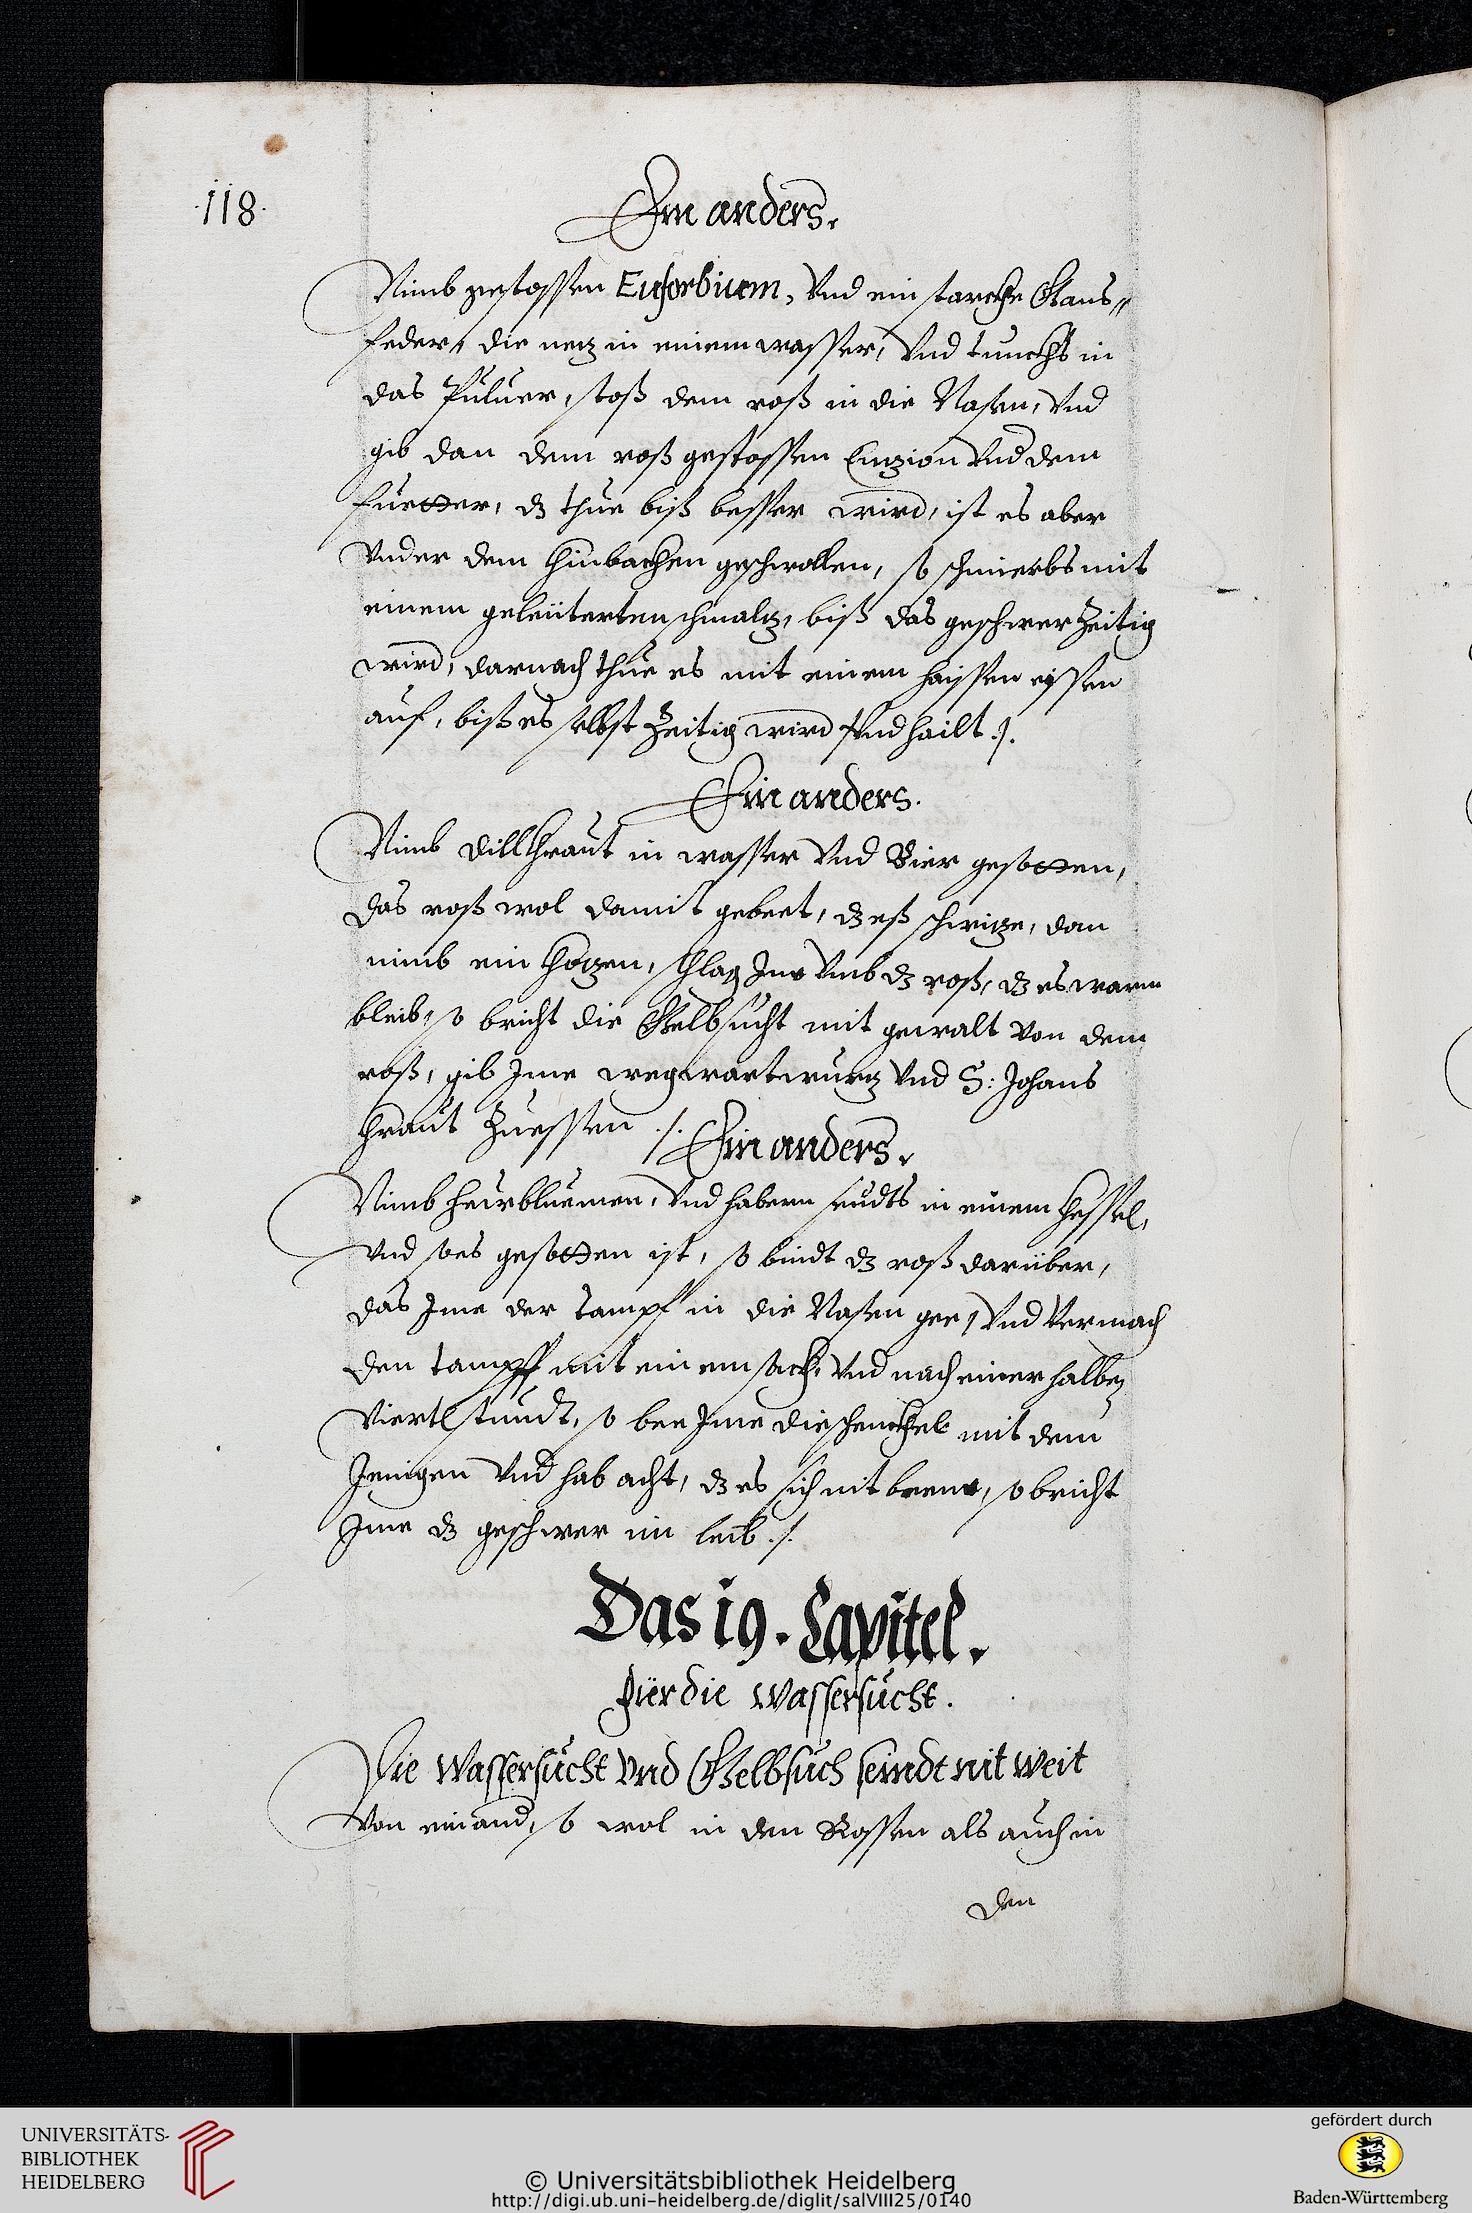 118.
Ein anders.
Nimb gestossen Euforbium, Vnd ein starckhe Gans„
feder, die netz in einem wasser, Vnd tunckhs in
das Puluer, stoß dem roß in die Nasen, Vnd
gib dan dem roß gestossen Enzion Vnd dem
fuetter, dz thue biß besser wird, ist es aber
Vnder dem khinbackhen geschwollen, so schmierbs mit
einem geleüterten schmaltz, biß das geschwer Zeitig
wird, darnach thue es mit einem haissen eyssen
auf, biß es selbst Zeitig wird Vnd hailt ./.
Ein anders.
Nimb dillkhraut in wasser Vnd Bier gesotten,
das roß wol damit gebeet, dz eß schwitze, dan
nimb ein khotzen, schlag Ims Vmb dz roß, dz es warm
bleib, so bricht die Gelbsucht mit gewalt von dem
roß, gib Ime wegwartwurtz Vnd S: Johans
khraut Zuessen ./.
Ein anders.
Nimb heüxbluemen, Vnd habern seudts in einem khessel,
Vnd so es gesotten ist, so bindt dz roß darüber,
das Ime der tampf in die Nasen gee, Vnd Vermach
den tampff mit einem sackh, Vnd nach einer halben
Viertlstundt, so bee Ime die schenckhel mit dem
Jenigen Vnd hab acht, dz es sich nit brenn, so bricht
Ime dz geschwer im leib ./.
Das 19. Capitel.
für die Wassersucht.
Die Wassersucht Vnd Gelbsuch seindt nit weit
Von einand, so wol in den Rossen als auch in
den
UNIVERSITÄTS-
BIBLIOTHEK
HEIDELBERG
© Universitätsbibliothek Heidelberg
http://digi.ub.uni-heidelberg.de/diglit/salVIII25/0140
gefördert durch
Baden-Württemberg